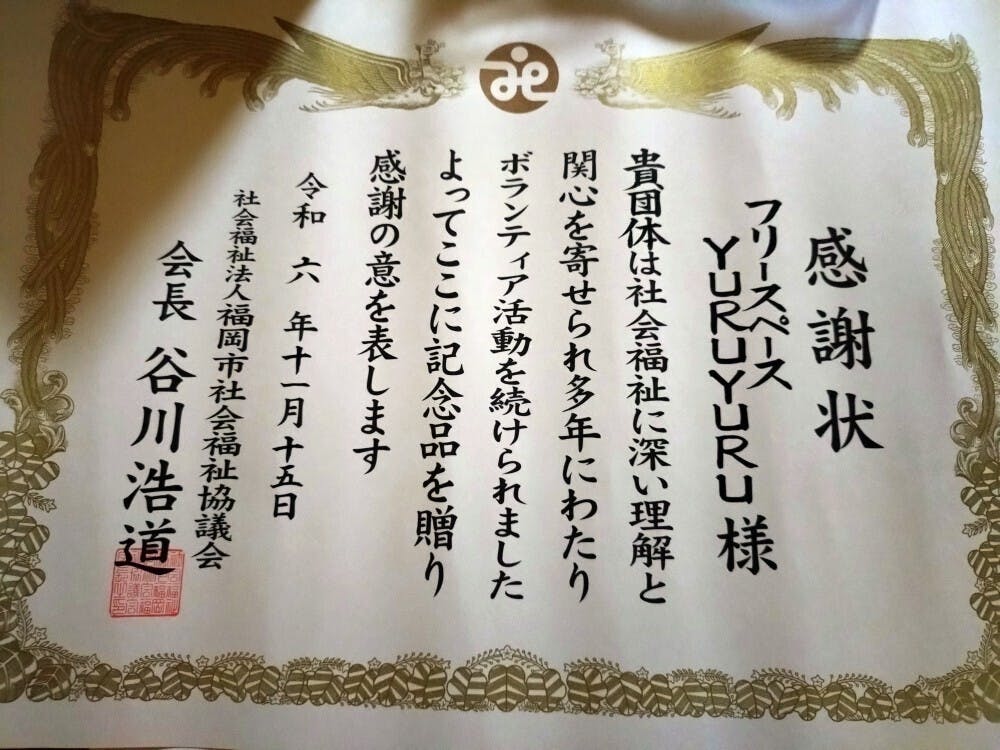 感謝状
フリースペース
YURUYURU様
貴団体は社会福祉に深い理解と
関心を寄せられ多年にわたり
ボランティア活動を続けられました
よってここに記念品を贈り
感謝の意を表します
令和六年十一月十五日
社会福祉法人福岡市社会福祉協議会
会長 谷川浩道